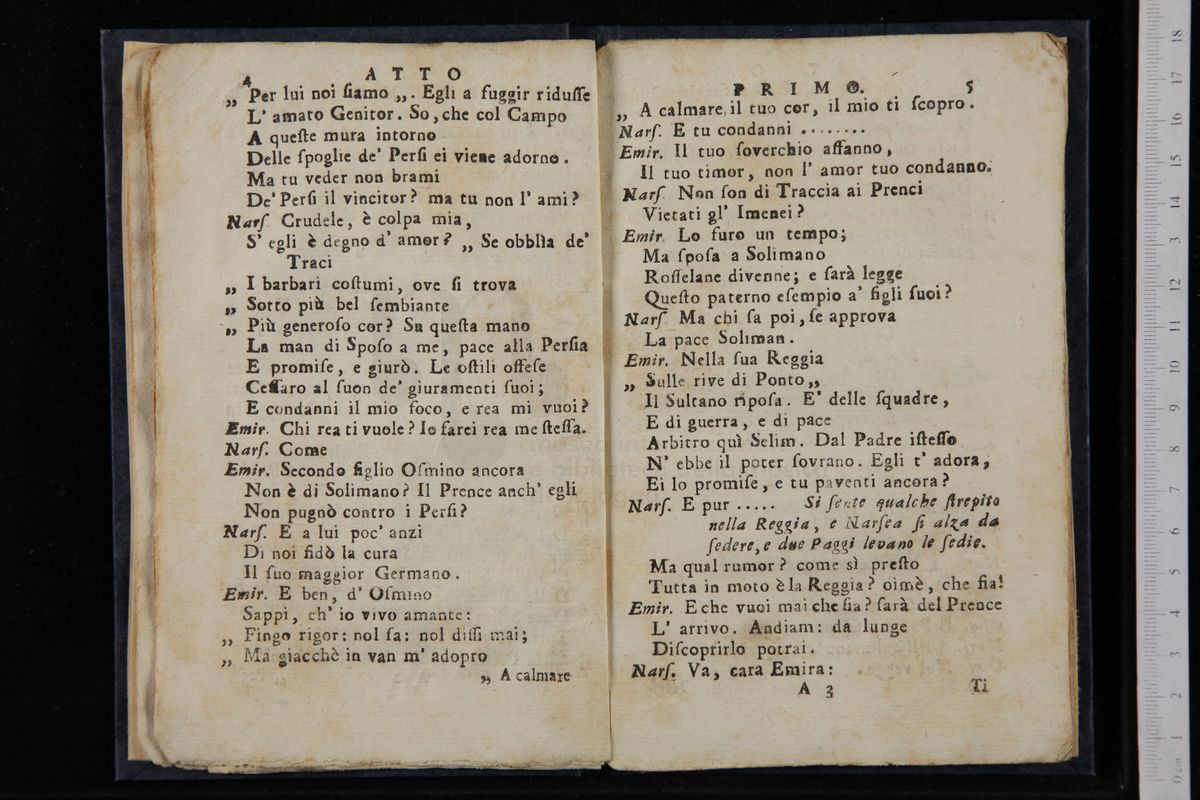 4
ATTO
„ Per lui noi ſiamo „. Egli a fuggir riduſſe
L' amato Genitor. So, che col Campo
A queſte mura intorno
Delle ſpoglie de' Perſi ei viene adorno.
Ma tu veder non brami
De' Perſi il vincitor? ma tu non l' ami?
Narſ. Crudele, è colpa mia,
S' egli è degno d' amor? „ Se obblìa de'
Traci
„ I barbari coſtumi, ove ſi trova
„ Sotto più bel ſembiante
„ Più generoſo cor? Su queſta mano
La man di Spoſo a me, pace alla Perſia
E promiſe, e giurò. Le oſtili offeſe
Ceſſaro al ſuon de' giuramenti ſuoi;
E condanni il mio foco, e rea mi vuoi?
Emir. Chi rea ti vuole? Io farei rea me ſteſſa.
Narſ. Come
Emir. Secondo figlio Oſmino ancora
Non è di Solimano? Il Prence anch' egli
Non pugnò contro i Perſi?
Narſ. E a lui poc' anzi
Di noi fidò la cura
Il ſuo maggior Germano.
Emir. E ben, d' Oſmino
Sappi, ch' io vivo amante:
„ Fingo rigor: nol ſa: nol diſſi mai;
„ Ma giacchè in van m' adopro
„ A calmare
PRIMO.
5
„ A calmare, il tuo cor, il mio ti ſcopro.
Narſ. E tu condanni ........
Emir. Il tuo ſoverchio affanno,
Il tuo timor, non l' amor tuo condanno.
Narſ. Non ſon di Traccia ai Prenci
Vietati gl' Imenei?
Emir. Lo furo un tempo;
Ma ſpoſa a Solimano
Roſſelane divenne; e ſarà legge
Queſto paterno eſempio a' figli ſuoi?
Narſ. Ma chi ſa poi, ſe approva
La pace Soliman.
Emir. Nella ſua Reggia
„ Sulle rive di Ponto „
Il Sultano ripoſa. E' delle ſquadre,
E di guerra, e di pace
Arbitro quì Selim. Dal Padre iſteſſo
N' ebbe il poter ſovrano. Egli t' adora,
Ei lo promiſe, e tu paventi ancora?
Narſ. E pur ..... Si ſente qualche ſtrepito
nella Reggia, e Narſea ſi alza da
ſedere, e due Paggi levano le ſedie.
Ma qual rumor? come sì preſto
Tutta in moto è la Reggia? oimè, che fia!
Emir. E che vuoi mai che ſia? ſarà del Prence
L' arrivo. Andiam: da lunge
Diſcoprirlo potrai.
Narſ. Va, cara Emira:
A 3
Ti
18
17
16
15
14
13
12
11
10
9
8
7
6
5
4
3
2
1
0 cm